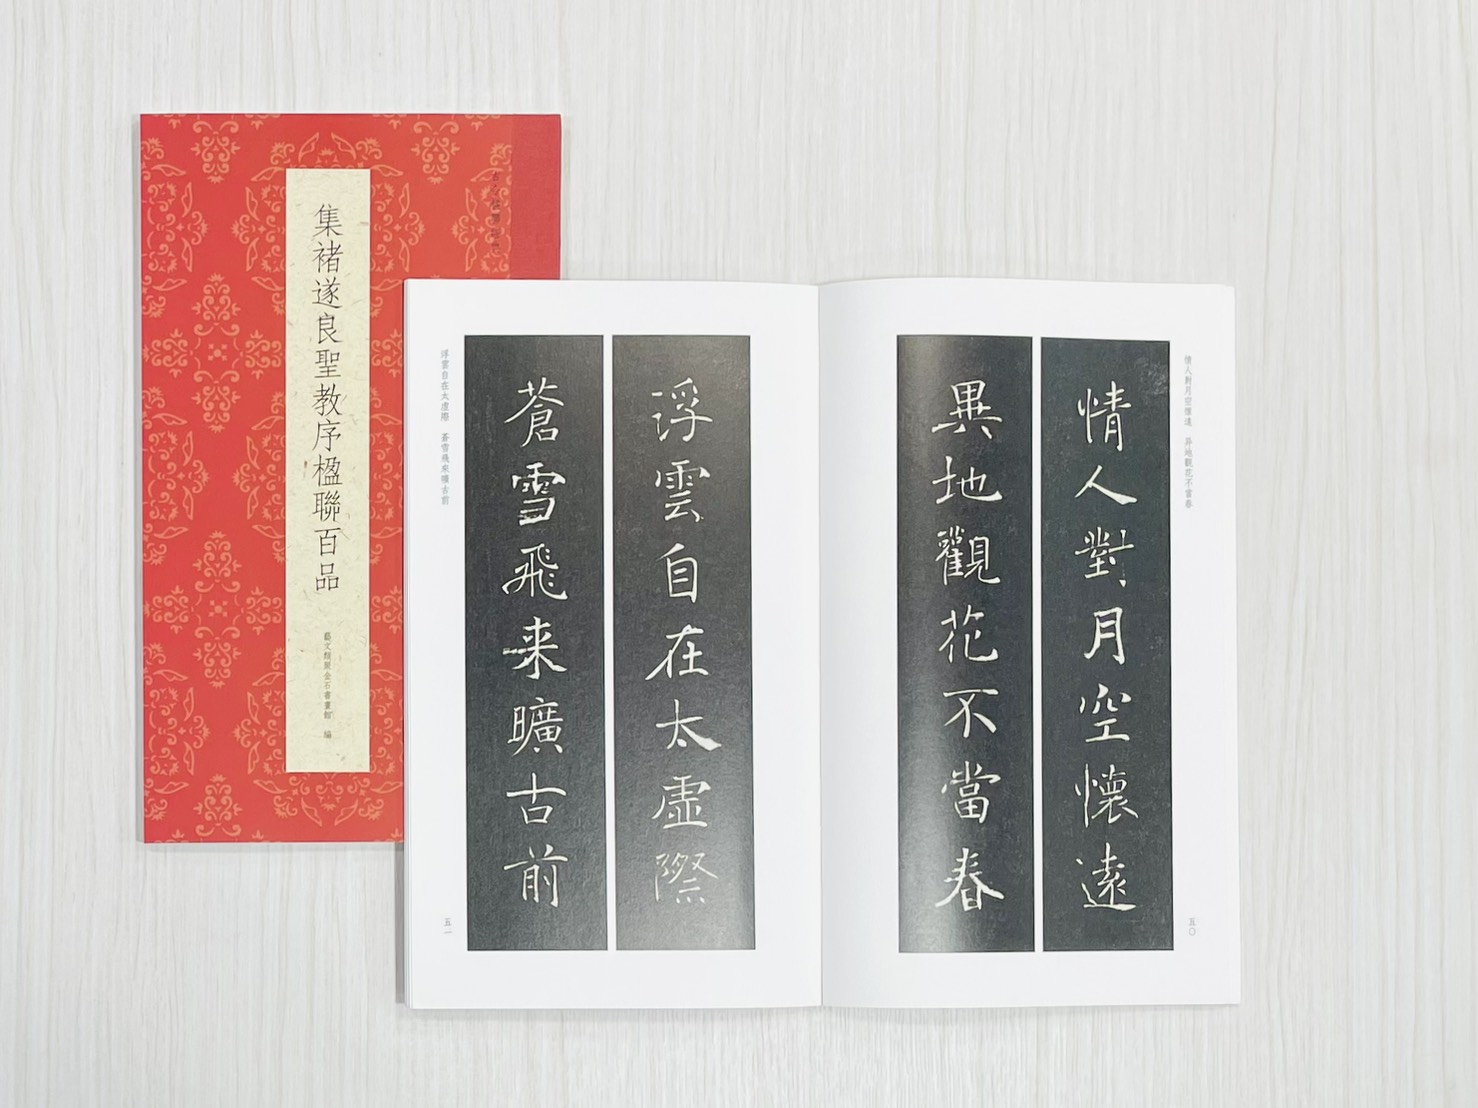 集褚遂良聖教序楹聯百品
藝文類聚金石書畫館 編
情人對月空懷遠 異地觀花不當春
情人對月空懷遠
異地觀花不當春
五〇
浮雲自在太虛際
蒼雪飛来曠古前
浮雲自在太虛際 蒼雪飛來曠古前
五一